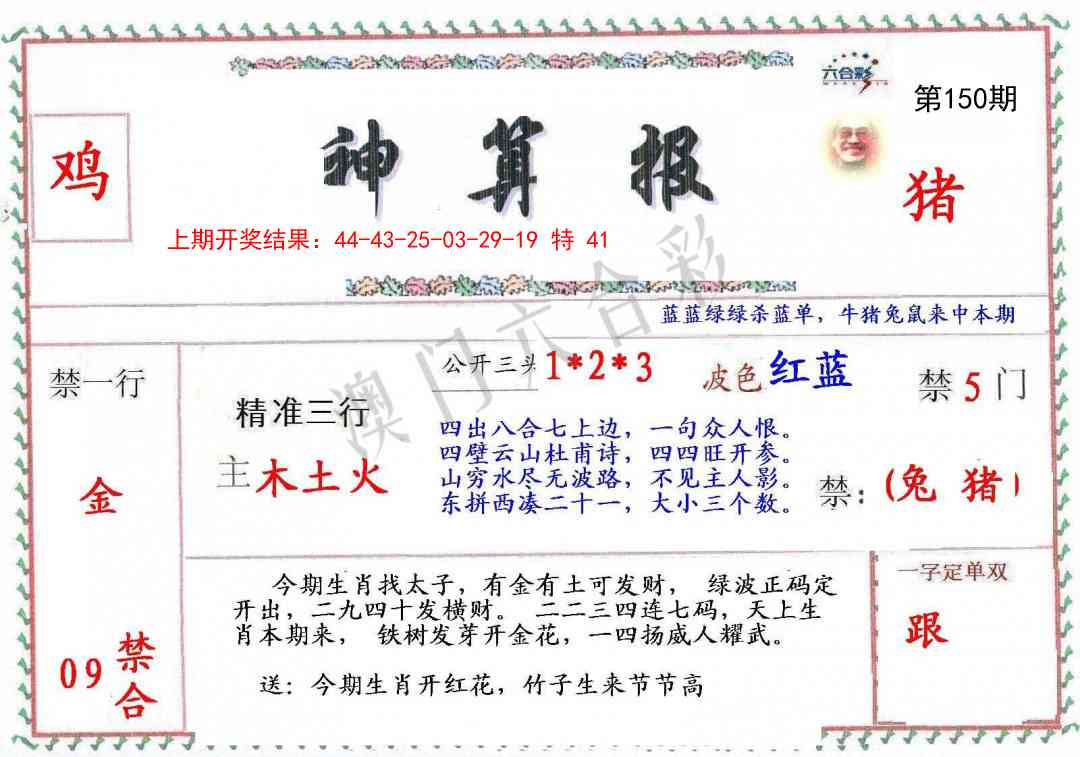 六合彩
第150期
鸡
神算报
猪
上期开奖结果：44-43-25-03-29-19 特 41
蓝蓝绿绿杀蓝单，牛猪兔鼠来中本期
禁一行
金
09
禁合
精准三行
主木土火
公开三头1*2*3
波色 红蓝
禁5门
四出八合七上边，一句众人恨。
四壁云山杜甫诗，四四旺开参。
山穷水尽无波路，不见主人影。
东拼西凑二十一，大小三个数。
禁：（兔 猪）
今期生肖找太子，有金有土可发财， 绿波正码定
开出，二九四十发横财。 二二三四连七码，天上生
肖本期来， 铁树发芽开金花，一四扬威人耀武。
送：今期生肖开红花，竹子生来节节高
一字定单双
跟
澳门六合彩